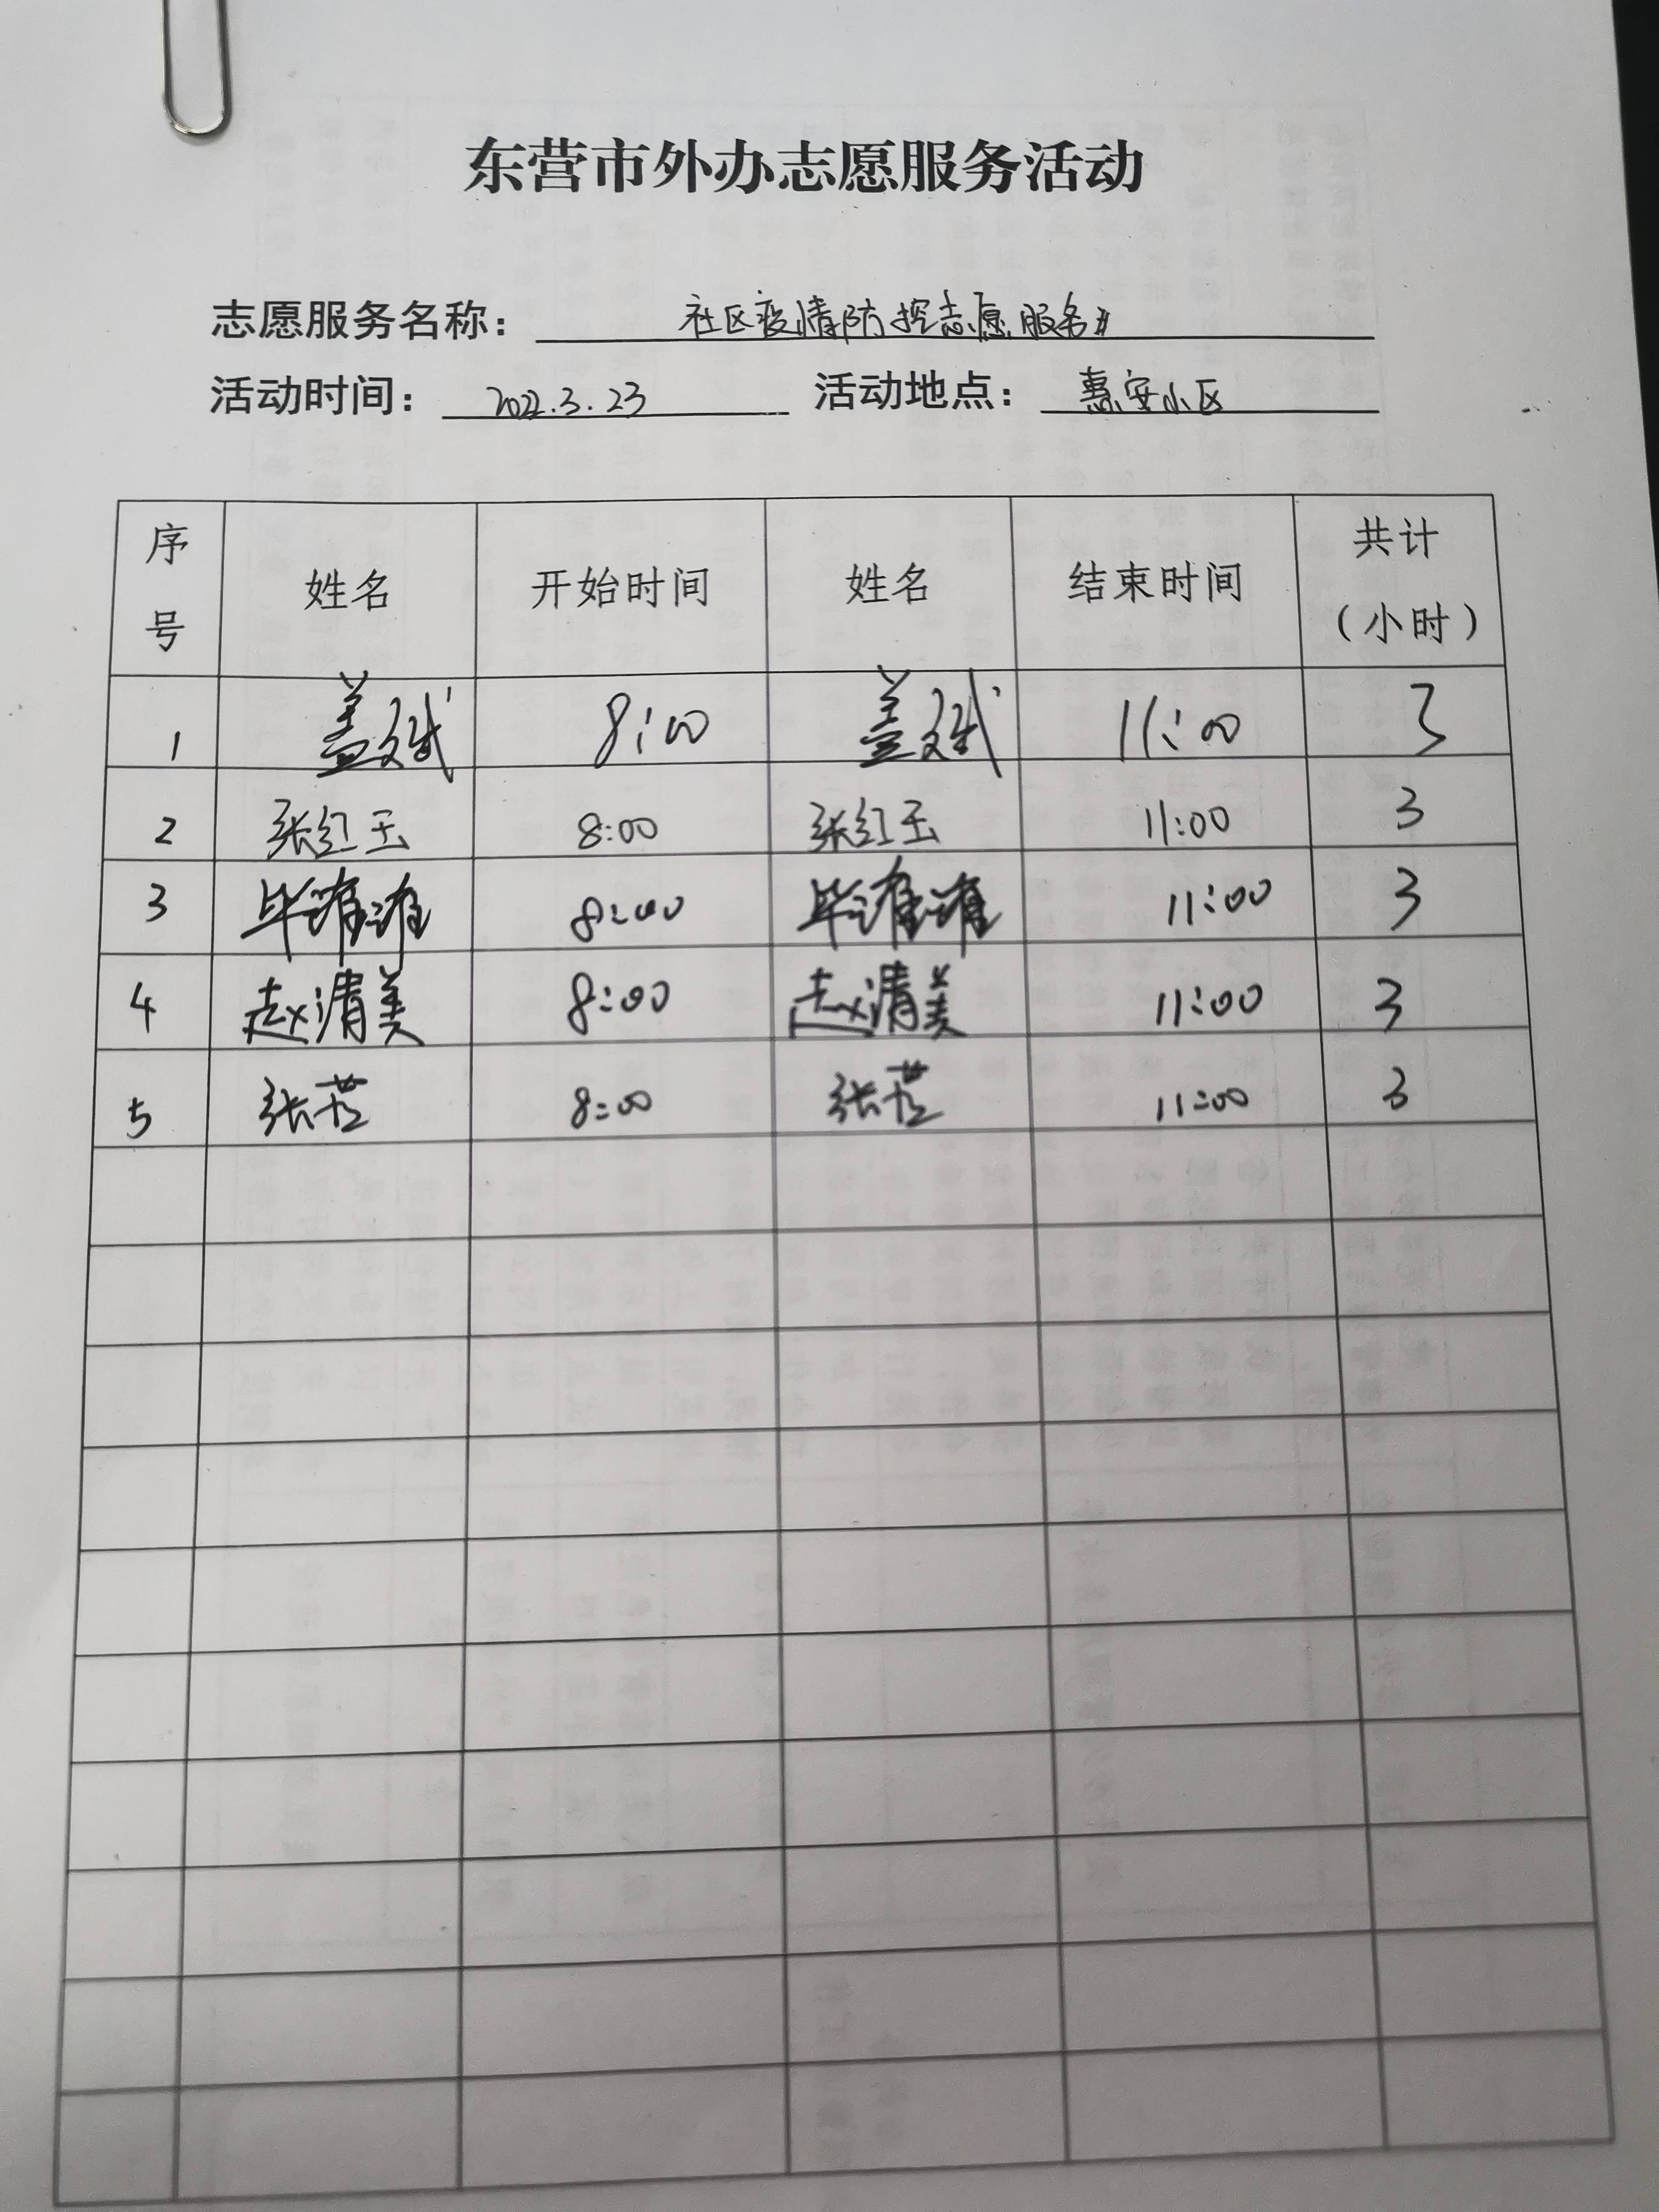 东营市外办志愿服务活动
志愿服务名称： 社区疫情防控志愿服务
活动时间： 2022.3.23 活动地点： 惠安小区
序号 姓名 开始时间 姓名 结束时间 共计（小时）
1 盖斌 8:00 盖斌 11:00 3
2 张红玉 8:00 张红玉 11:00 3
3 毕 8:00 毕 11:00 3
4 赵清美 8:00 赵清美 11:00 3
5 张芸 8:00 张芸 11:00 3